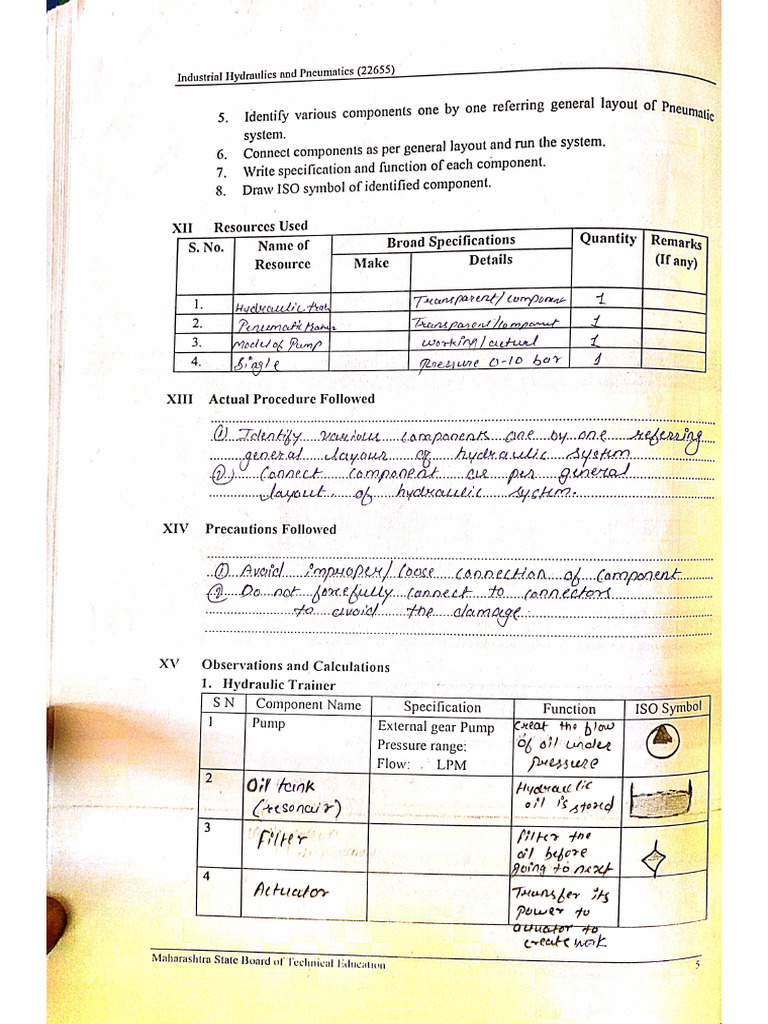 Industrial Hydraulics and Pneumatics (22655)
5. Identify various components one by one referring general layout of Pneumatic
system.
6. Connect components as per general layout and run the system.
7. Write specification and function of each component.
8. Draw ISO symbol of identified component.
XII Resources Used
S. No. Name of Resource Broad Specifications Quantity Remarks (If any)
Make Details
1. Hydraulic Transparent/component 1
2. Penumatic Transparent/component 1
3. Model of Pump working/actual 1
4. Single pressure 0-10 bar 1
XIII Actual Procedure Followed
① Identify various components one by one referring
general layour of hydraulic system
② Connect component as per general
layout of hydraulic system.
XIV Precautions Followed
① Avoid improper/loose connection of component
② Do not forcefully connect to connectors
to avoid the damage
XV Observations and Calculations
1. Hydraulic Trainer
S N Component Name Specification Function ISO Symbol
1 Pump External gear Pump Creat the flow
Pressure range: of oil under
Flow: LPM pressure
2 Oil tank Hydraulic
(resonair) oil is stored
3 filter filter the
oil before
going to next
4 Actuator Transfer its
power to
actuator to
create work
Maharashtra State Board of Technical Education 5